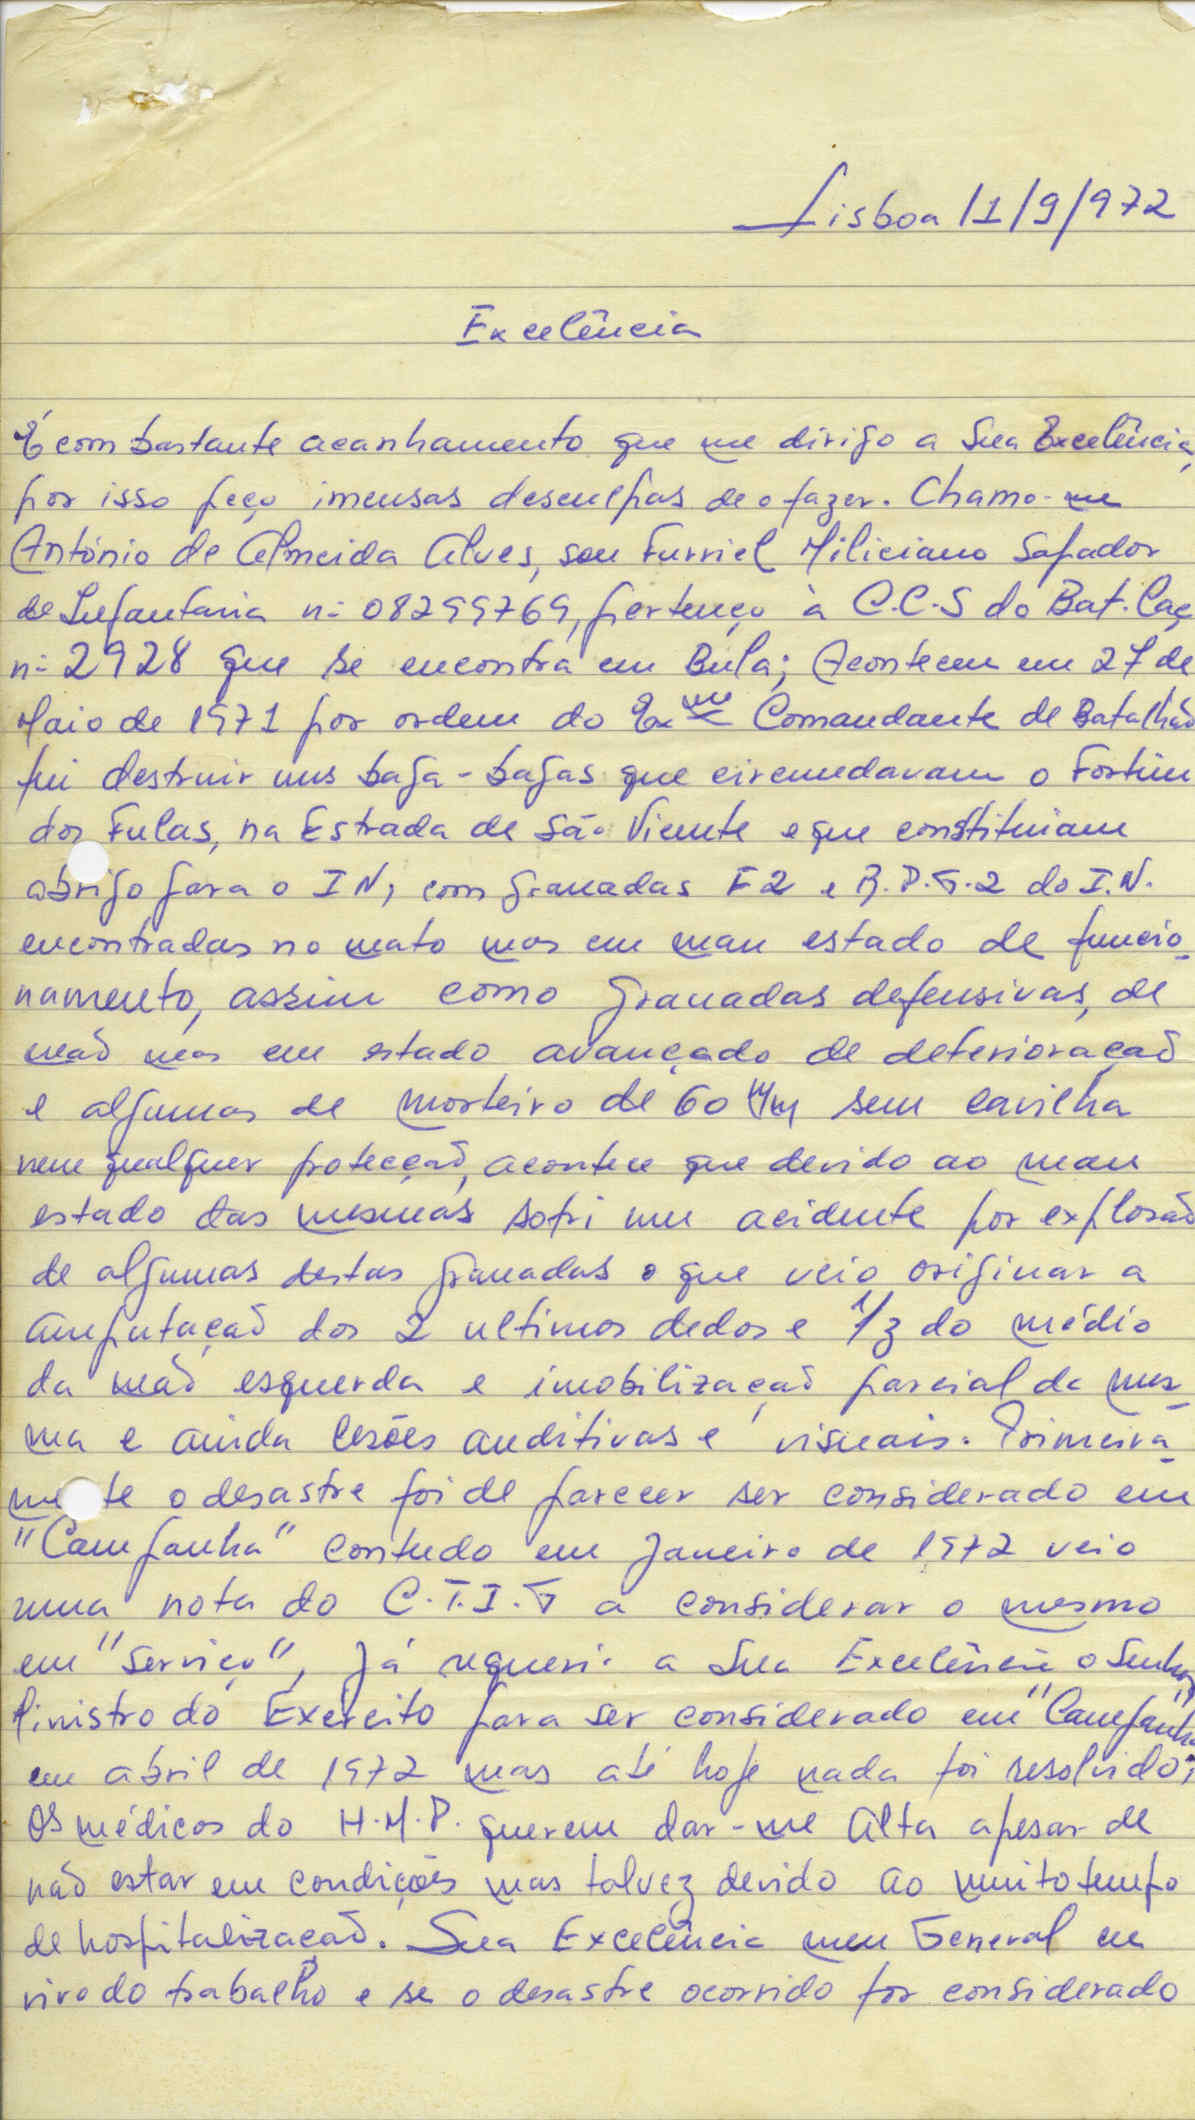 Lisboa 11/9/972
Excelência
É com bastante acanhamento que me dirijo a Sua Excelência,
por isso peço imensas desculpas de o fazer. Chamo-me
António de Almeida Alves, sou Furriel Miliciano Sapador
de Infantaria nº 08299769, pertenço à C.C.S do Bat. Caç
nº 2928 que se encontra em Bula; Aconteceu em 27 de
Maio de 1971 por ordem do Exmº Comandante de Batalhão
fui destruir uns baga-bagas que circundavam o Fortim
dos Fulas, na Estrada de São Vicente e que constituiam
abrigo para o IN, com granadas F2 e R.P.G.2 do I.N.
encontradas no mato mas em mau estado de funcio-
namento, assim como granadas defensivas, de
mão mas em estado avançado de deterioração
e algumas de morteiro de 60 m/m sem cavilha
nem qualquer protecção, acontece que devido ao mau
estado das mesmas sofri um acidente por explosão
de algumas destas granadas o que veio originar a
amputação dos 2 ultimos dedos e 1/3 do médio
da mão esquerda e imobilização parcial da mes-
ma e ainda lesões auditivas e visuais. Primeira-
mente o desastre foi de parecer ser considerado em
"Campanha" contudo em Janeiro de 1972 veio
uma nota do C.T.I.G a considerar o mesmo
em "serviço", Já requeri a Sua Excelência o Senhor
Ministro do Exercito para ser considerado em "Campanha"
em abril de 1972 mas até hoje nada foi resolvido;
Os médicos do H.M.P. querem dar-me Alta apesar de
não estar em condições mas talvez devido ao muito tempo
de hospitalização. Sua Excelência meu General eu
vivo do trabalho e se o desastre ocorrido for considerado